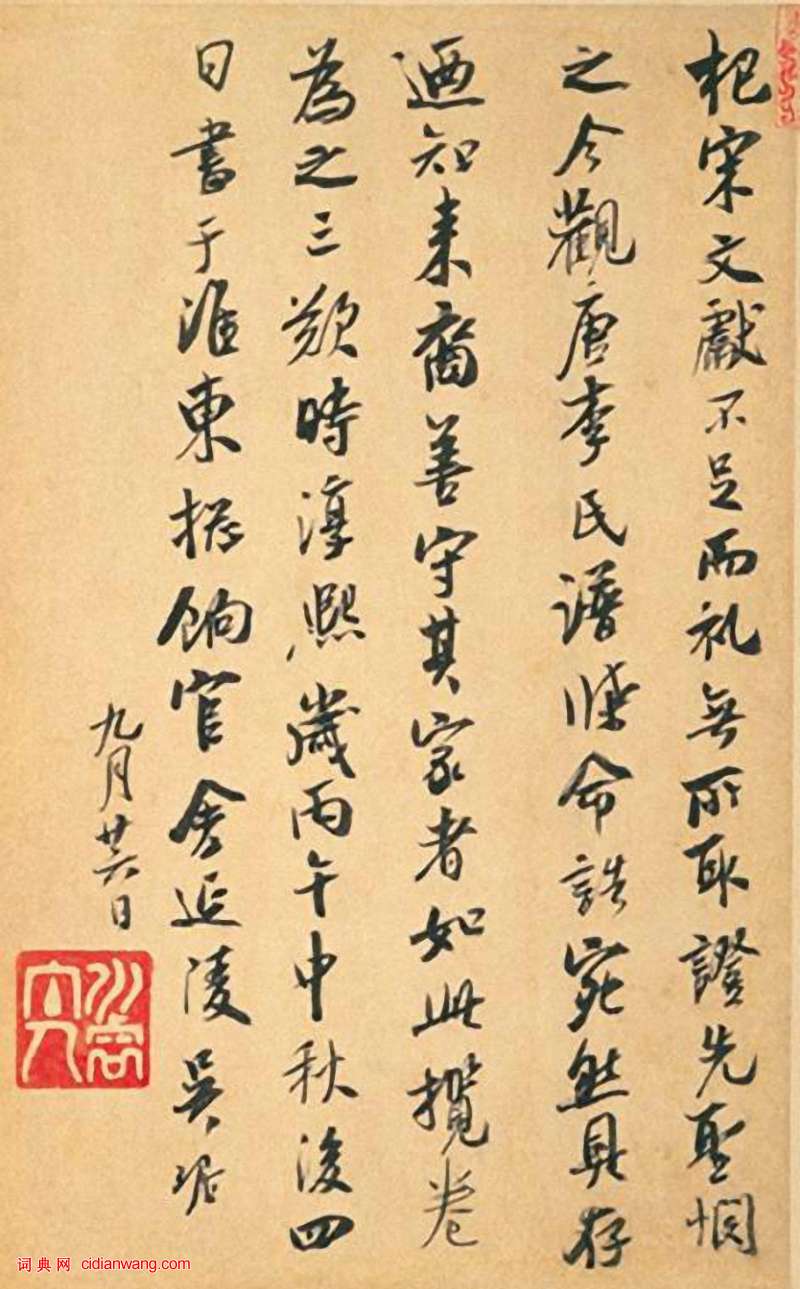 杞宋文獻不足而礼無所取證先聖惘
之今觀唐李氏譜牒命誥宛然具存
迺知來裔善守其家者如此攬卷
為之三歎時淳熙歲丙午中秋後四
日書于淮東捴餉官舍延陵吳琚
九月廿六日
词典网 cidianwang.com